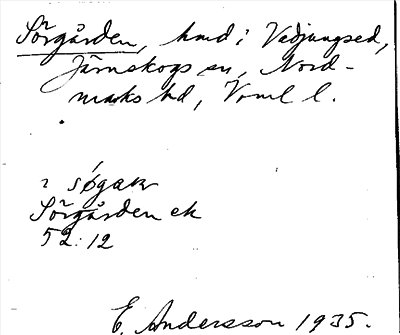 Sörgården, hmd i Vadjungsed,
Järnskogs sn, Nord-
marks hd, Vrml l.
i søgaɴ
Sörgården ek
52:12
E. Andersson 1935.